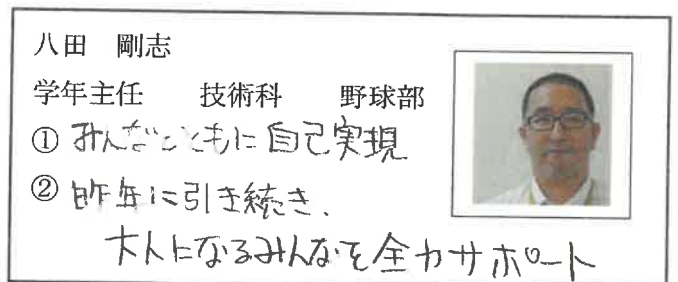 八田　剛志
学年主任　技術科　野球部
① みんなとともに自己実現
② 昨年に引き続き、
大人になるみんなを全力サポート